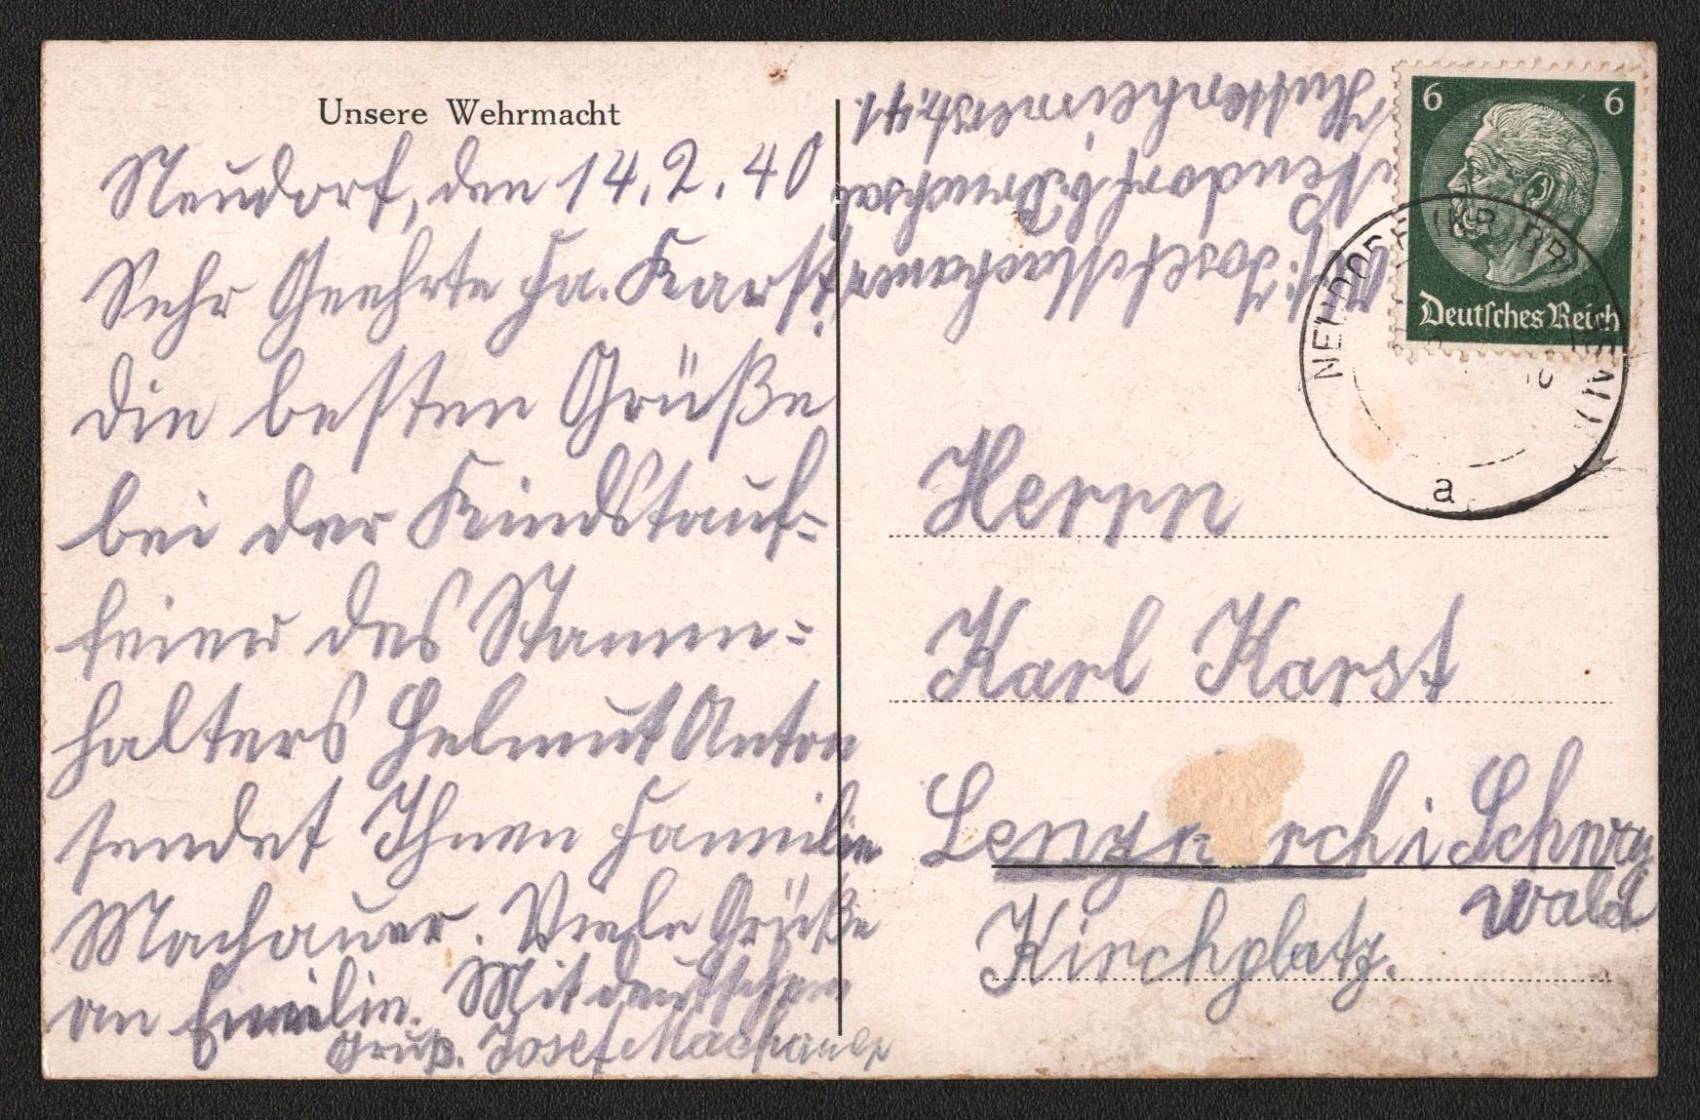 Unsere Wehrmacht
Neudorf, den 14.2.40
Sehr Geehrte Fa. Karst!
Die besten Grüße
bei der Kindstauf=
feier des Stamm=
halters Helmut Anton
sendet Ihnen Familie
Machauer. Viele Grüße
an Emilie. Mit deutschem
Gruß. Josef Machauer
Abs: Josef Machauer
Neudorf b. Bruchsal
Huttenheimerstr. 41.
6 6
Deutsches Reich
NEUDORF
a
Herrn
Karl Karst
Lenzk rch i Schwarz
wald
Kirchplatz.